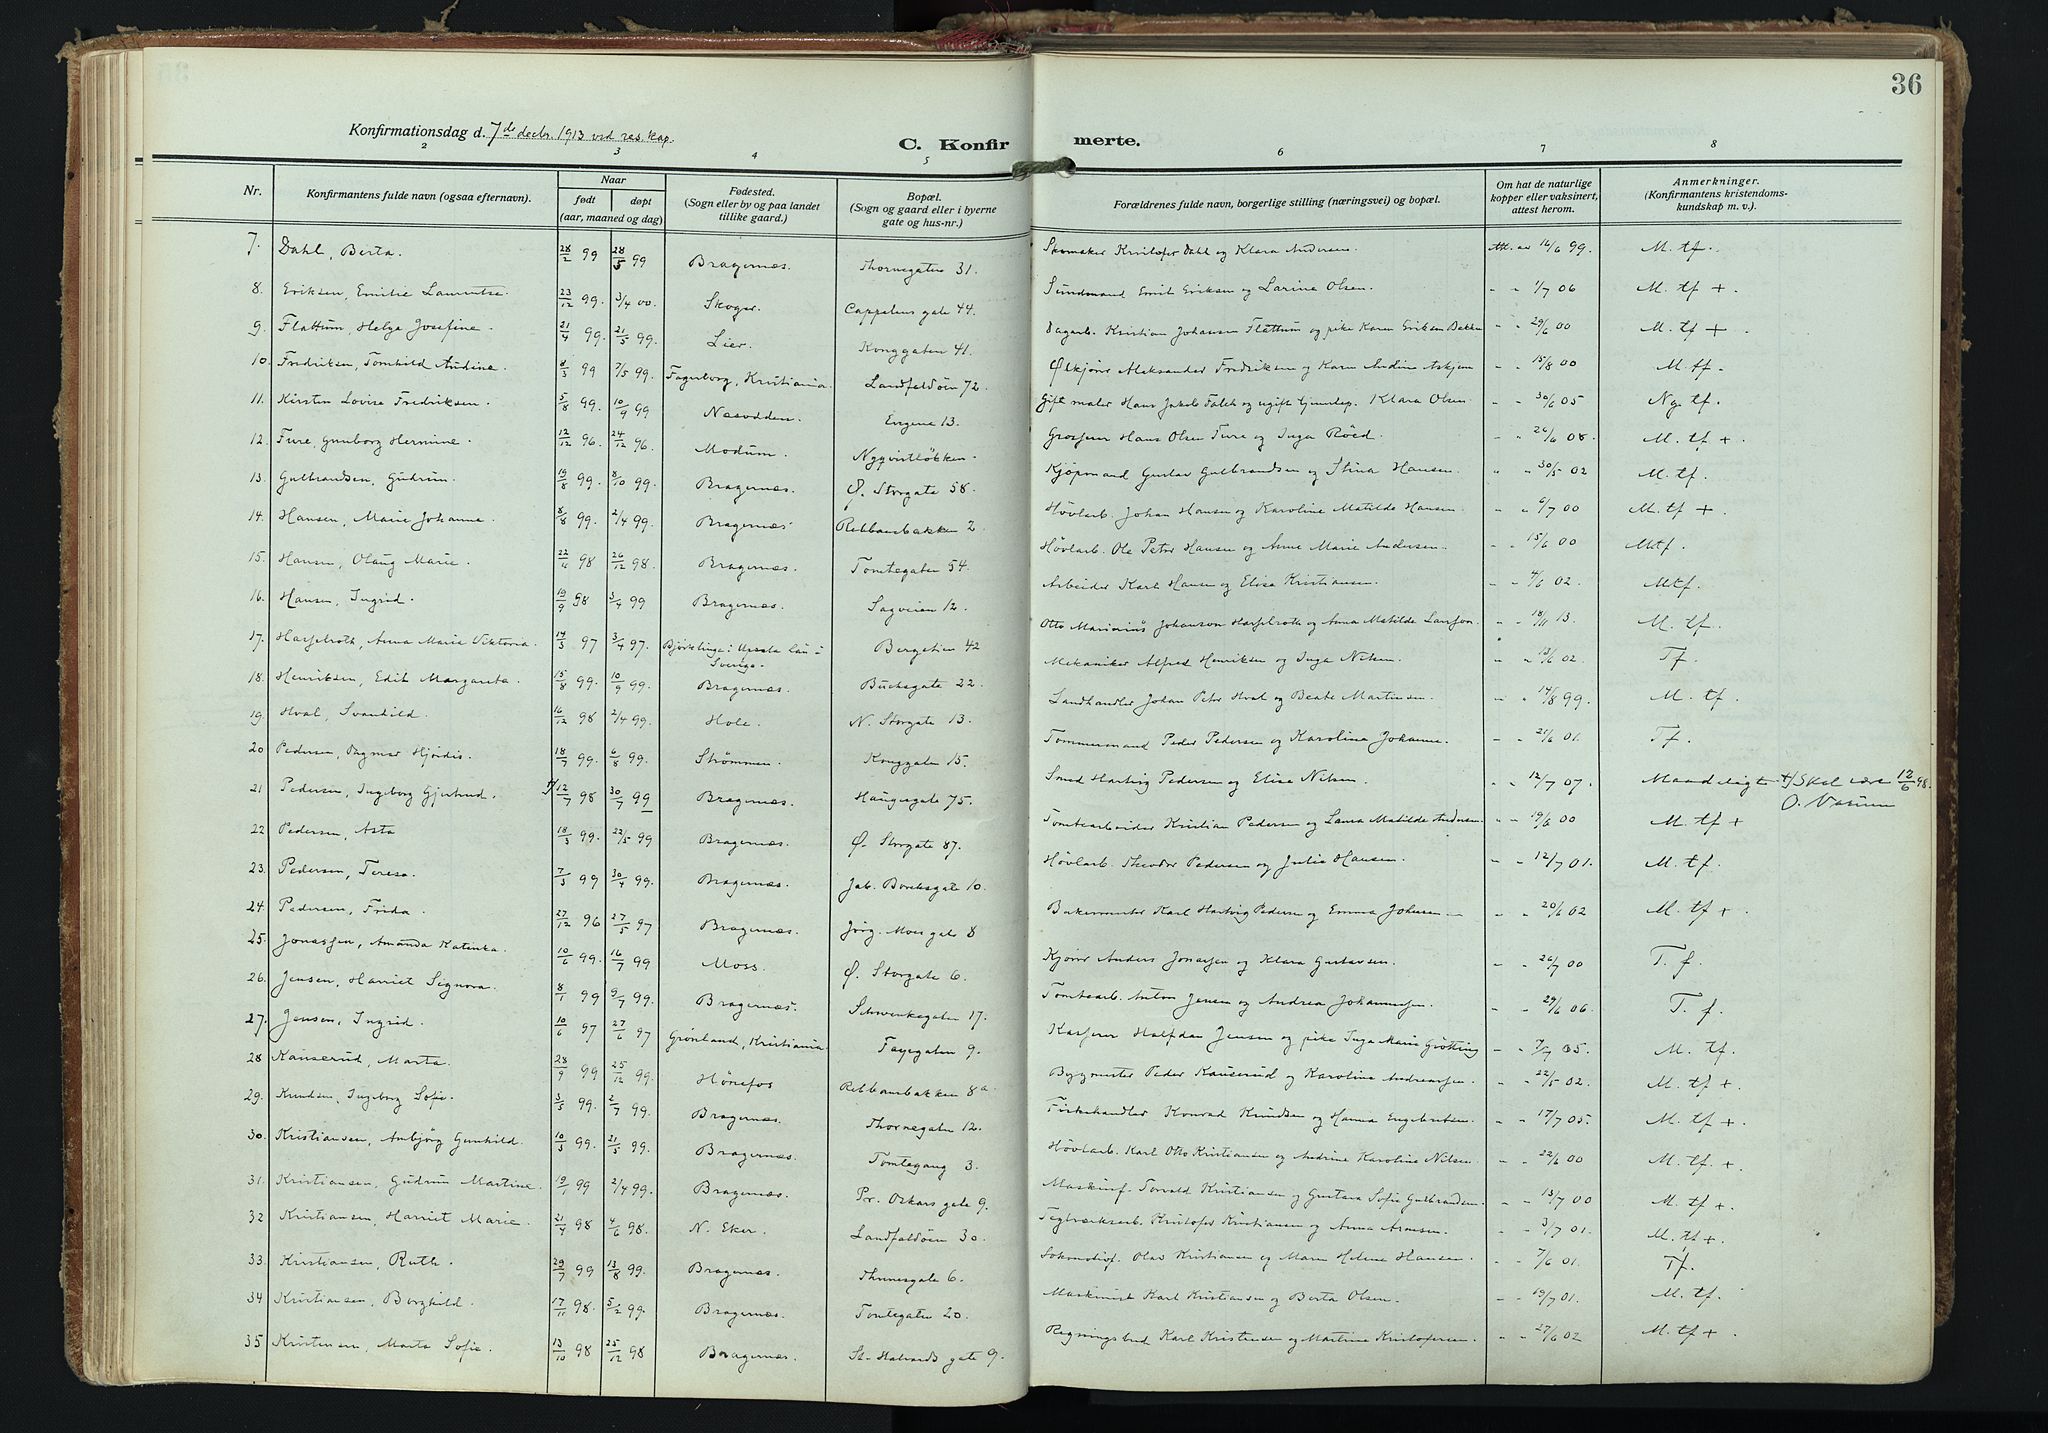 36
Konfirmationsdag d. 7de decbr. 1913 ved res. kap.
C. Konfirmerte.
2 3 4 5 6 7 8
Nr. Konfirmantens fulde navn (ogsaa efternavn). Naar født døpt (aar, maaned og dag) Fødested. (Sogn eller by og paa landet tillike gaard.) Bopæl. (Sogn og gaard eller i byerne gate og hus-nr.) Forældrenes fulde navn, borgerlige stilling (næringsvei) og bopæl. Om hat de naturlige kopper eller vaksinert, attest herom. Anmerkninger. (Konfirmantens kristendomskundskap m. v.)
7. Dahl, Berta. 28/2 99 28/5 99 Bragernæs. Thornegaten 31. Skomaker Kristofer Dahl og Klara Andersen. Att. av 16/6 99. M. tf.
8. Eriksen, Emilie Laurentse. 23/12 99. 3/4 00. Skoger. Cappelens gate 44. Sundmand Emil Eriksen og Larine Olsen. " " 1/7 06 M. tf +.
9. Flattum, Helga Josefine. 21/4 99. 21/5 99. Lier. Konggaten 41. Dagarb. Kristian Johansen Flattum og pike Karen Eriksen Bakke " " 29/6 00 M. tf +
10. Fredriksen, Tomhild Andine. 8/3 99 7/5 99. Fagerborg, Kristiania. Landfaldöen 72. Ölkjörer Aleksander Fredriksen og Karen Andine Askjem " " 15/8 00 M. tf.
11. Kirsten Lovise Fredriksen. 5/8 99. 10/9 99 Næsodden. Engene 13. Gift maler Hans Jakob Falch og ugift tjenestep. Klara Olsen. " " 30/6 05 Ng. tf.
12. Fure, Gunborg Hermine. 12/12 96. 24/12 96. Modum. Nyqvistløkken. Grosserer Hans Olsen Fure og Inga Röed. " " 26/6 08. M. tf +.
13. Gulbrandsen, Gudrun. 19/8 99. 8/10 99. Bragernæs. Ø. Storgate 58. Kjöpmand Gustav Gulbrandsen og Stina Hansen. " " 30/5 02 M. tf.
14. Hansen, Marie Johanne. 8/8 99. 2/4 99. Bragernæs. Rebbansbakken 2 Hövlarb. Johan Hansen og Karoline Matilde Hansen " " 6/7 00 M. tf +.
15. Hansen, Olaug Marie. 22/11 98 26/12 98. Bragernæs. Tomtegaten 54. Hövlarb. Ole Peter Hansen og Anne Marie Andersen. " " 15/6 00 Mtf.
16. Hansen, Ingrid. 19/9 98 3/4 99 Bragernæs. Sagveien 12. Arbeider Karl Hansen og Elisa Kristiansen. " " 4/6 02. Mtf.
17. Hasselroth, Anna Maria Viktoria. 14/3 97 3/4 97. Bjørklinge i Upsala län i Sverige. Bergstien 42 Otto Marinius Johanson Hasselroth og Anna Matilde Larsson. " " 18/11 13. M. tf.
18. Henriksen, Edit Margareta. 15/8 99. 10/9 99. Bragernæs. Buchsgate 22. Mekaniker Alfred Henriksen og Inga Nilsen. " " 13/6 02. Tf.
19. Hval, Svanhild. 16/12 98 2/4 99. Hole. N. Storgate 13. Landhandler Johan Peter Hval og Beate Martinsen. " " 14/8 99. M. tf.
20 Pedersen, Dagmar Hjördis. 18/7 99. 6/8 99. Strömmen. Konggaten 15. Tømmermand Peder Pedersen og Karolina Johanne. " " 21/6 01. Tf.
21 Pedersen, Ingeborg Gjertrud. 12/7 98 30/7 99 Bragernæs. Haugesgate 75. Smed Hartvig Pedersen og Elise Nilsen. " " 12/7 07. Maadeligt +) Skal være 12/6 98. O. Vasrun
22 Pedersen, Asta 18/3 99. 22/5 99 Bragernæs. Ø. Storgate 87. Tomtearbeider Kristian Pedersen og Laura Matilde Andersen. " " 19/6 00 M. tf +
23. Pedersen, Teresa. 7/3 99 30/4 99. Bragernæs. Jab. Borchsgate 10. Hövlarb. Theodor Pedersen og Julie Hansen. " " 12/7 01. M. tf.
24. Pedersen, Frida. 27/12 96 27/5 97 Bragernæs. Jörg. Moes gate 8 Bakermester Karl Hartvig Pedersen og Emma Johansen " " 20/6 02 M. tf +.
25. Jonassen, Amanda Katinka. 10/6 99. 16/7 99 Moss. Ø. Storgate 6. Kjörer Anders Jonassen og Klara Gustavsen. " " 26/7 00 T. f.
26. Jensen, Harriet Signora. 8/1 99 9/7 99. Bragernæs. Schwenkegaten 17. Tomtearb. Anton Jensen og Andrea Johannessen. " " 29/6 06. T. f.
27. Jensen, Ingrid. 10/6 97 27/6 97 Grønland, Kristiania. Fayegaten 9. Kasserer Halfdan Jensen og pike Inga Marie Grötting " " 7/7 05. M. tf.
28 Kauserud, Marta. 28/9 99 25/12 99. Hönefos Rebbansbakken 8a Bygmester Peder Kauserud og Karoline Andreassen. " " 22/5 02. M. tf +
29. Knudsen, Ingeborg Sofie. 3/5 99. 2/7 99. Bragernæs. Thornegaten 12. Fiskehandler Konrad Knudsen og Hanna Engebretsen. " " 17/7 05. M. tf +.
30. Kristiansen, Anbjörg Gunhild. 10/3 99. 21/5 99. Bragernæs. Tomtegang 3. Hövlarb. Karl Otto Kristiansen og Andrine Karoline Nilsen. " " 22/6 00 M. tf. +
31. Kristiansen, Gudrun Martine. 19/1 99 2/4 99. Bragernæs. Pr. Oskars gate 9. Maskinf. Torvald Kristiansen og Gustava Sofie Gulbrandsen. " " 13/7 00 M. tf +.
32 Kristiansen, Harriet Marie. 21/4 98 4/6 98. N. Eker. Landfaldöen 30. Teglverksarb. Kristofer Kristiansen og Anna Arnesen. " " 3/7 01. M. tf +.
33. Kristiansen, Ruth. 29/7 99 13/8 99. Bragernæs. Thunesgate 6. Lokomotivf. Olav Kristiansen og Maren Helene Hansen. " " 7/6 01. Tf.
34 Kristiansen, Borghild. 17/11 98. 5/2 99. Bragernæs. Tomtegaten 20. Maskinist Karl Kristiansen og Berta Olsen. " " 19/7 01. M. tf.
35 Kristensen, Marta Sofie. 13/10 98 25/12 98 Bragernæs. St. Halvards gate 9. Regningsbud Karl Kristensen og Martine Kristofersen. " " 27/6 02 M. tf +.